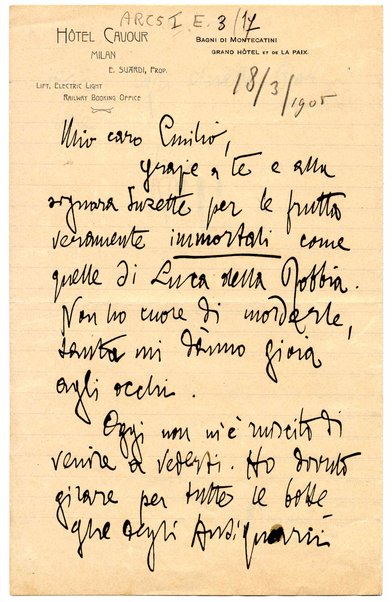 ARCS I E. 3/17
HÔTEL CAVOUR
MILAN
E. SUARDI, PROP.
LIFT, ELECTRIC LIGHT
RAILWAY BOOKING OFFICE
BAGNI DI MONTECATINI
GRAND HÔTEL ET DE LA PAIX
18/3/1905
Mio caro Emilio,
grazie a te e alla
signora Suzette per le frutta
veramente immortali come
quelle di Luca della Robbia.
Non ho cuore di morderle,
tanta mi dànno gioia
agli occhi.
Oggi non m'è riuscito di
venire a vederti. Ho dovuto
girare per tutte le botte
ghe degli Antiquarii